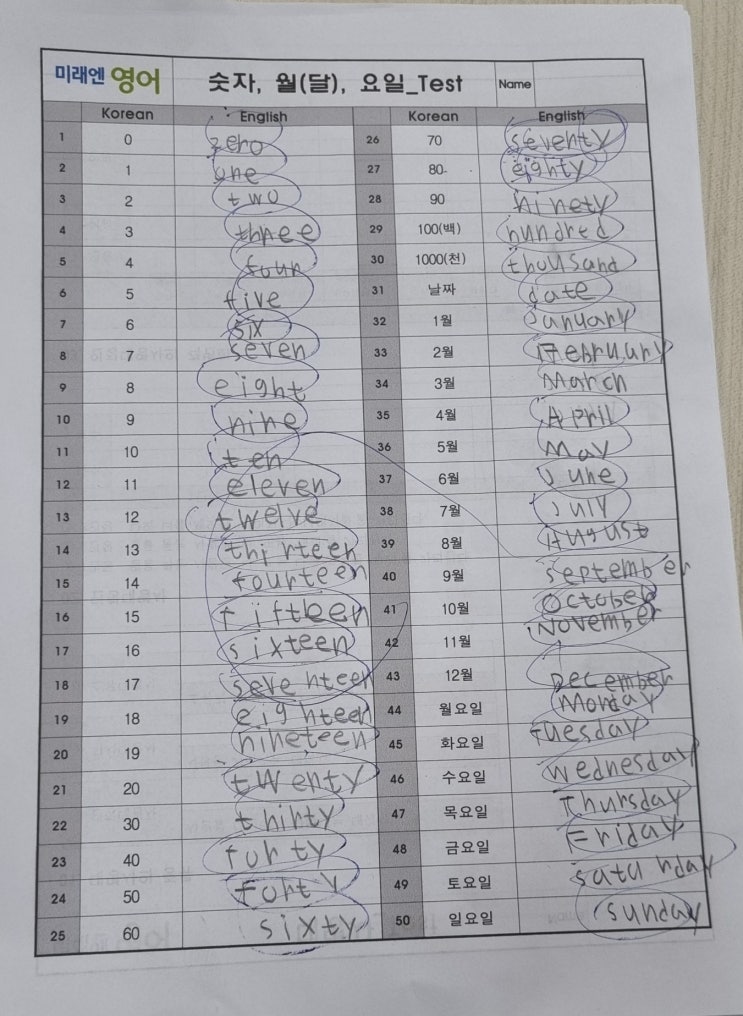 미래엔 영어 숫자, 월(달), 요일_Test Name
Korean English Korean English
1 0 zero 26 70 seventy
2 1 one 27 80 eighty
3 2 two 28 90 ninety
4 3 three 29 100(백) hundred
5 4 four 30 1000(천) thousand
6 5 five 31 날짜 date
7 6 six 32 1월 January
8 7 seven 33 2월 February
9 8 eight 34 3월 March
10 9 nine 35 4월 April
11 10 ten 36 5월 May
12 11 eleven 37 6월 June
13 12 twelve 38 7월 July
14 13 thirteen 39 8월 August
15 14 fourteen 40 9월 september
16 15 fifteen 41 10월 October
17 16 sixteen 42 11월 November
18 17 seventeen 43 12월 December
19 18 eighteen 44 월요일 Monday
20 19 nineteen 45 화요일 Tuesday
21 20 twenty 46 수요일 Wednesday
22 30 thirty 47 목요일 Thursday
23 40 forty 48 금요일 Friday
24 50 forty 49 토요일 saturday
25 60 sixty 50 일요일 sunday